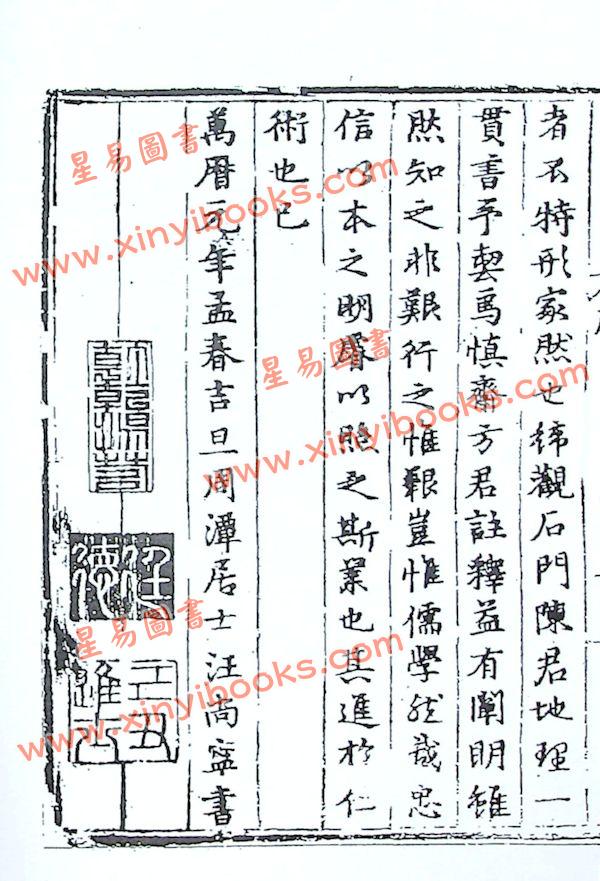 者不特形家然也締觀石門陳君地理一
貫書予契焉慎齋方君註釋益有闡明雖
然知之非艱行之惟艱豈惟儒學然哉忠
信以本之明睿以照之斯業也其進於仁
術也已
萬曆元年孟春吉旦周潭居士汪尚寧書
丑
進士
星易圖書
www.xinyibooks.com
星易圖書
www.xinyibooks.com
星易圖書
www.xinyibooks.com